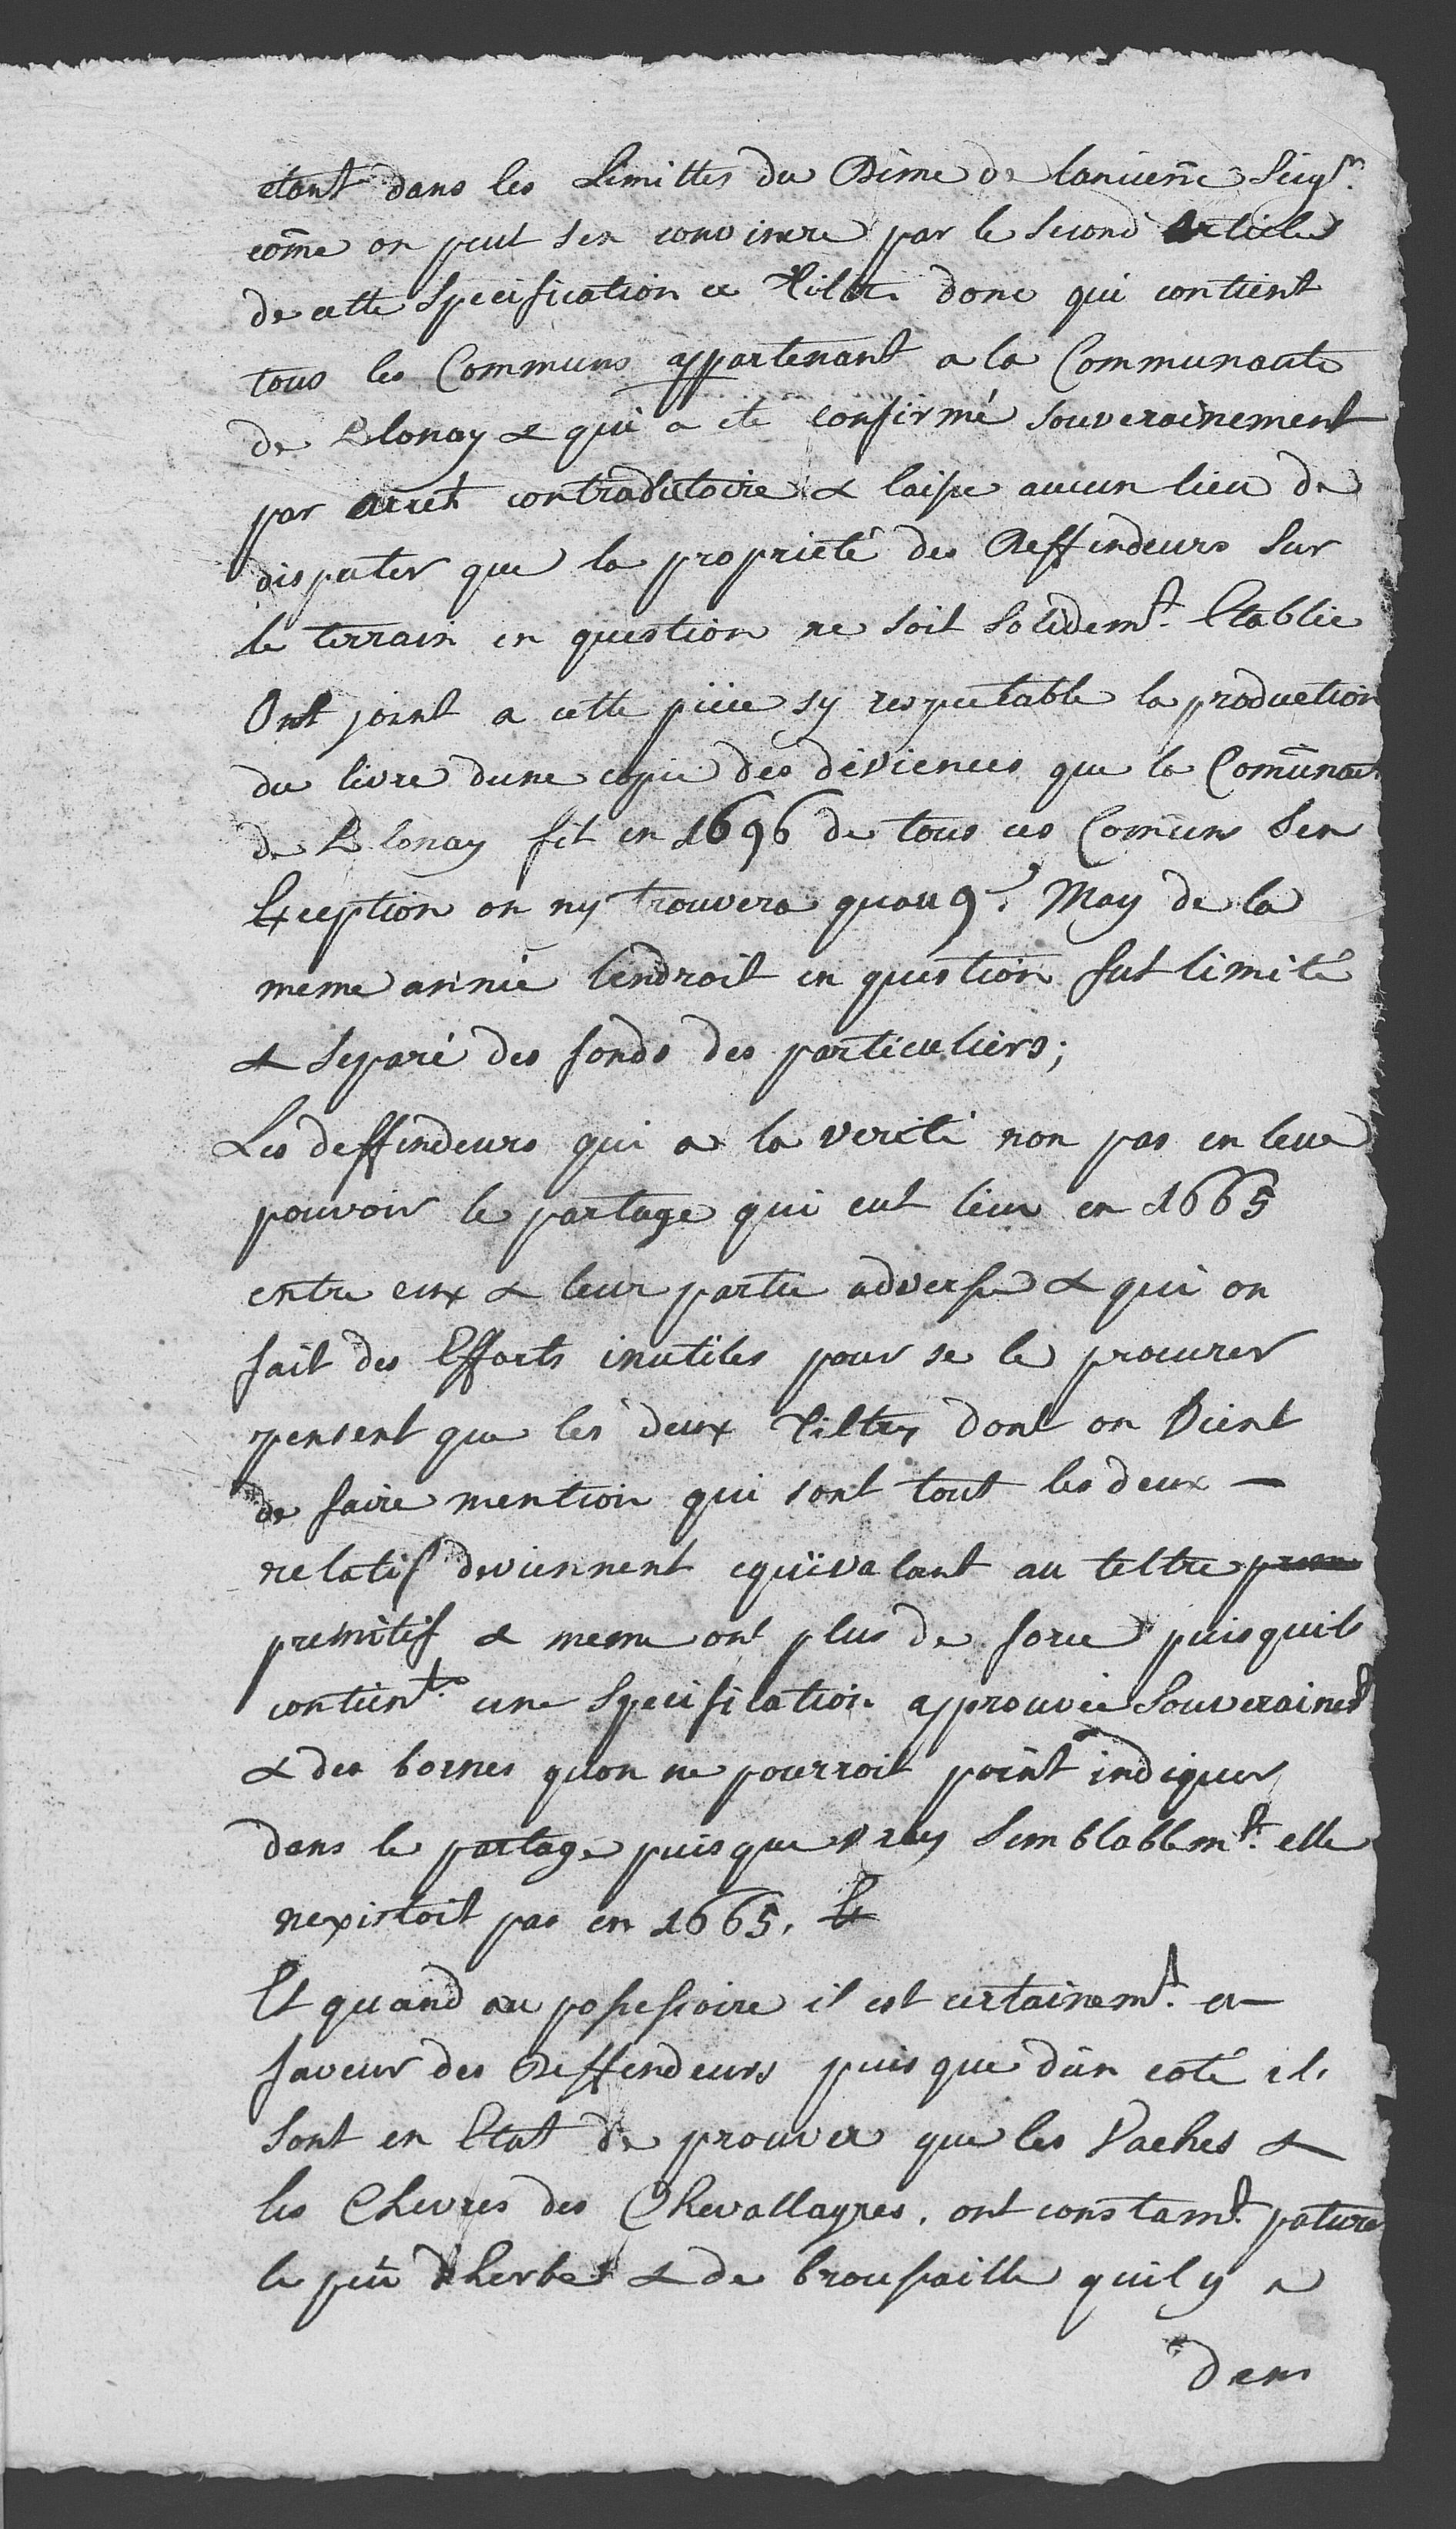 etant dans les Limittes du Dime de lancienē Seigr.
come on peut sen convincre par le Second Article
de cette Specification ce Tiltre donc qui contient
tous les Communs appartenant a la Communauté
de Blonay & qui a ete confirmé souverainement
par arret contradictoire & laisse aucun lieu de
disputer que la proprieté des Deffendeurs sur
le terrain en question ne soit Solidemt. Etablie
Ont joint a cette piece sy respectable la production
du livre dune copie des déviences que la Comūnaut
de Blonay fit en 1696 de tous ces Comuns sen
Exception on ny trouvera quau 9e. May de la
meme année lendroit en question fut limité
& Separé des fonds des particuliers;
Les deffendeurs qui a la verité non pas en leur
pouvoir le partage qui eut lieu en 1665
entre eux & leur partie adverse & qui on
fait des Efforts inutiles pour se le procurer
pensent que les deux Tiltres dont on Vient
de faire mention qui sont tout les deux —
relatif deviennent equivalant au teltre
premitif & meme ont plus de force puisquils
contient. une Specification approuvée Souverainet
& des bornes quon ne pourroit point indiquer
dans le partage puis que vray Semblablemt. elle
nexistoit pas en 1665.
Et quand au possessoire il est certainemt. en
faveur des Deffendeurs puis que dun coté ils
Sont en Etat de prouver que les Vaches &
les Chevres des Chevallayres. ont constamt. paturé
le peu dherbe & de broussaille quil y a
dens